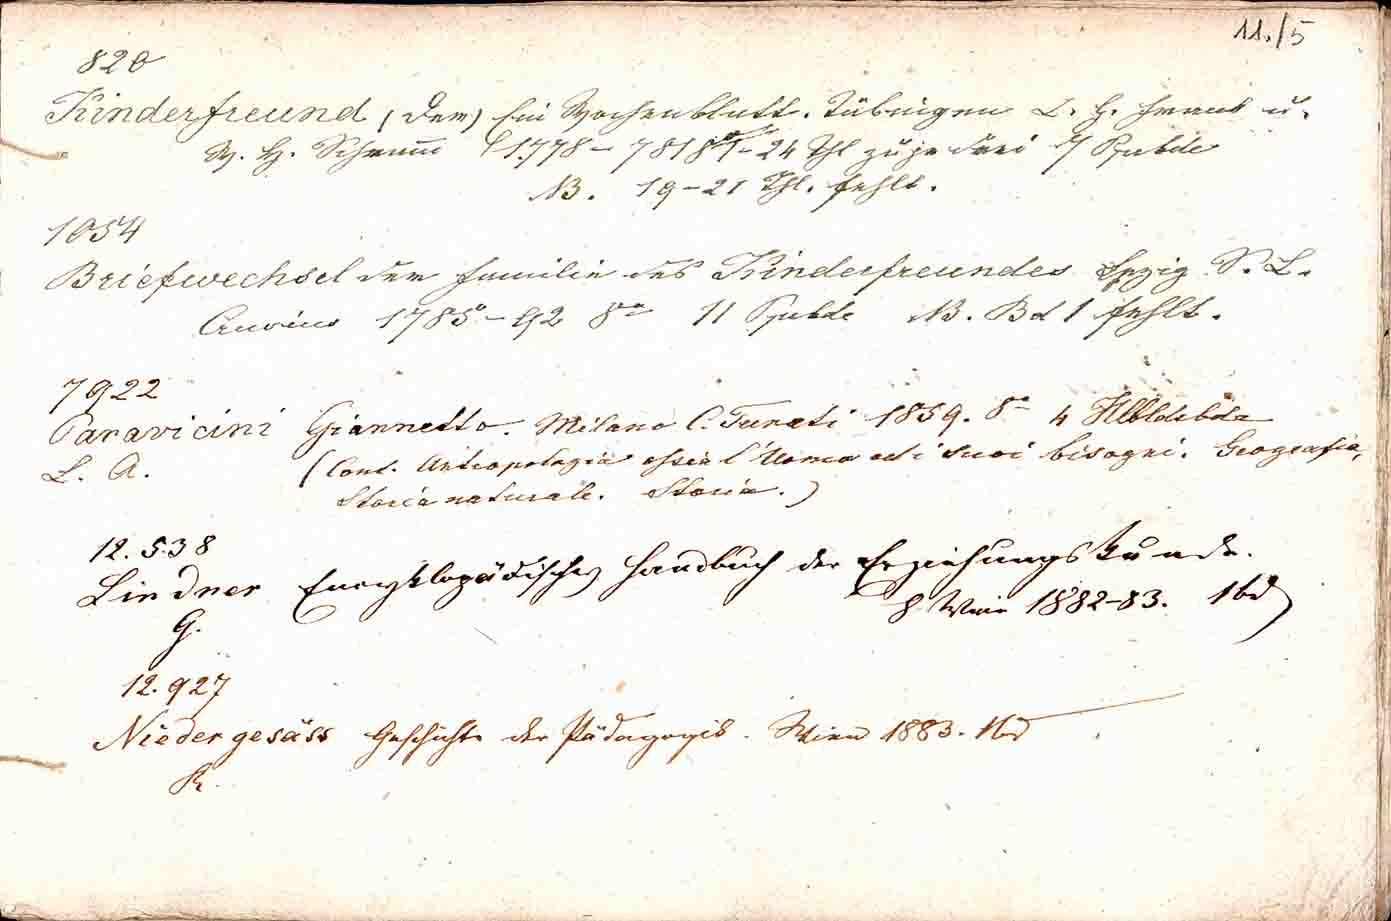 11./5
820
Kinderfreund, (Der) Ein Wochenblatt. Tübingen L. H. u.
W. H. Schramm 1778– –24 Thl zu je drei 7 Hbde
NB. 19–21 Thl. fehlt.
1054
Briefwechsel der Familie des Kinderfreundes Lpzig S. L.
Crusius 1785–92 8° 11 Hbde NB. Bd 1 fehlt.
7922
Paravicini Giannetto. Milano C. Turati 1859. 8° 4
L. A. (Cont. Antropologia ossia l'Uomo ed i suoi bisogni. Geografia,
Storia naturale. Storia.)
12.538
Lindner Encyklopädisches Handbuch der Erziehungskunde.
G. 8 Wien 1882–83. 1bd
12.927
Niedergesäss Geschichte der Pädagogik. Wien 1883. 1bd
R.